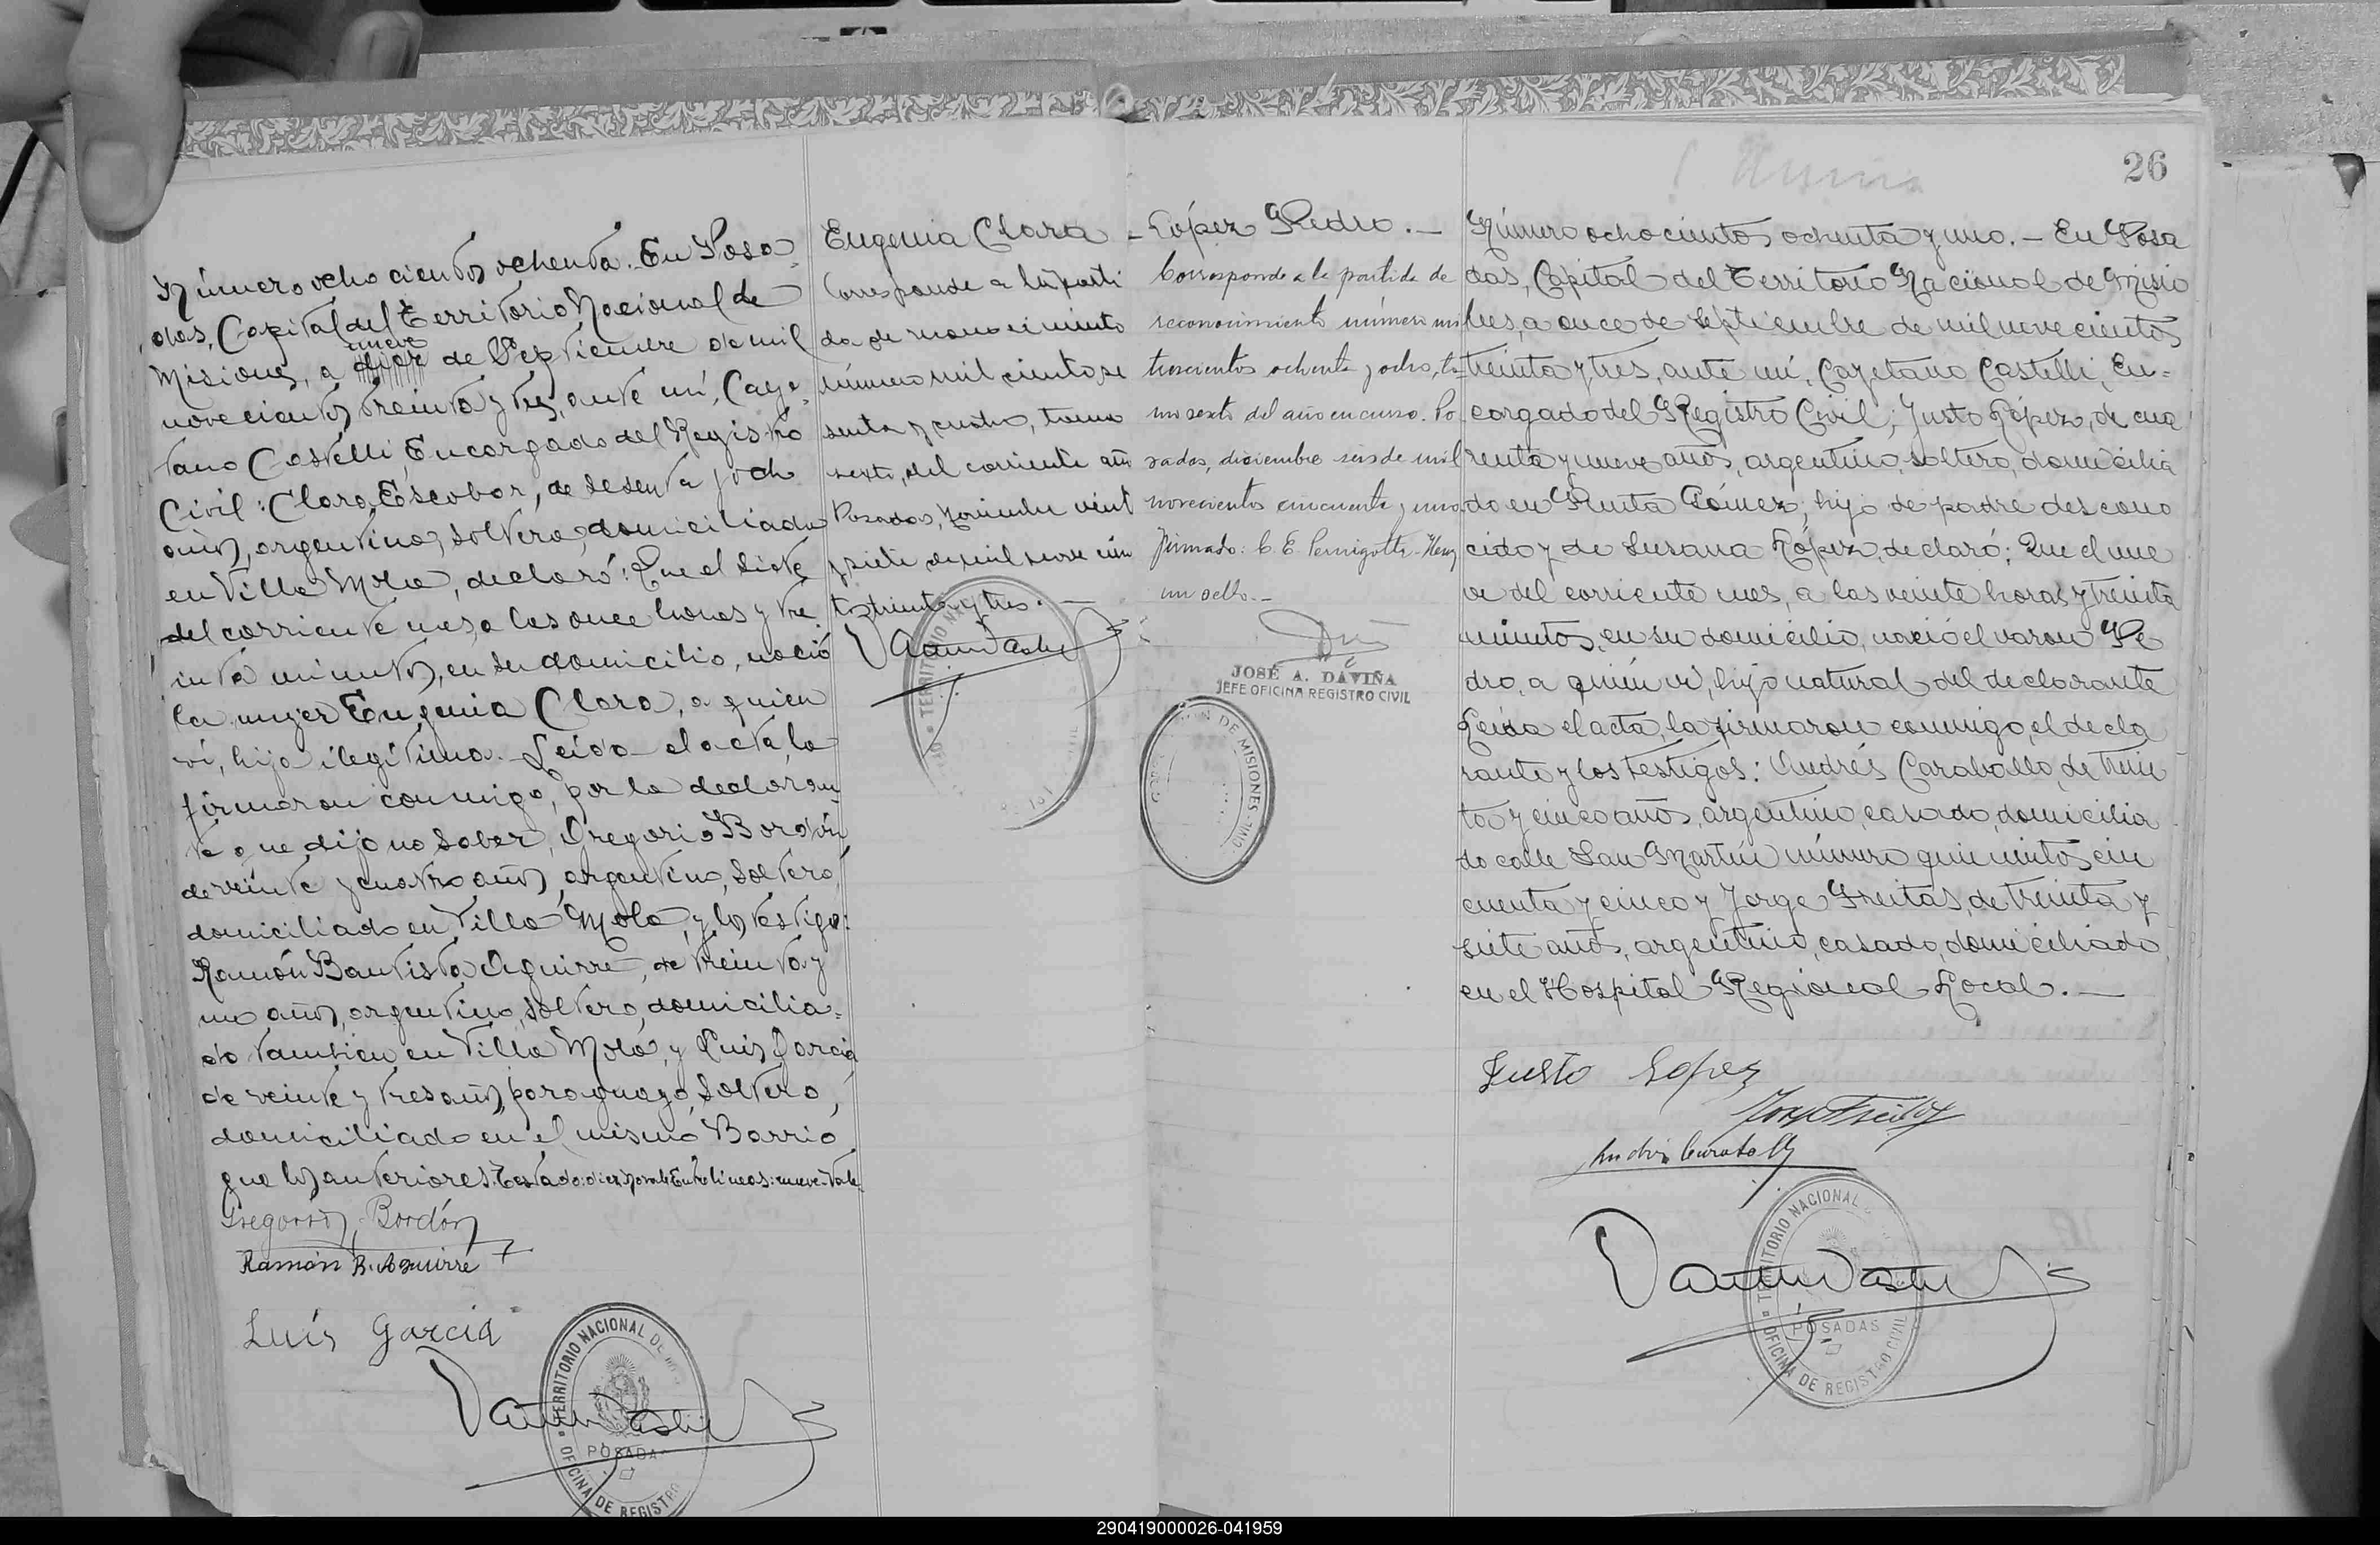 Número ocho cientos ochenta. En Posa-
das, Capital del Territorio Nacional de
nueve
Misiones, a diez de Septiembre de mil
novecientos treinta y tres, ante mí, Caye-
tano Castelli, Encargado del Registro
Civil: Clara Escobar, de sesenta y ocho
años, argentina, soltera, domiciliada
en Villa Mola, declaró: Que el siete
del corriente mes, a las once horas y tre-
inta minutos, en su domicilio, nació
la mujer Eugenia Clara, a quien
ví, hija ilegítima. Leída el acta, la
firmaron conmigo, por la declaran-
te que dijo no saber, Gregorio Bordón
de veinte y cuatro años, argentino, soltero,
domiciliado en Villa Mola, y los testigos:
Ramón Bautista Aguirre, de treinta y
un años, argentino, soltero, domicilia-
do tambien en Villa Mola, y Luis Garcia
de veinte y tres años, paraguayo, soltero,
domiciliado en el mismo Barrio
que los anteriores. Testado: diez. No vale. Entre lineas: nueve. Vale.
Gregorio Bordón
Ramón B. Aguirre
Luís Garcia
TERRITORIO NACIONAL DE
POSADAS
OFICINA DE REGISTRO
Eugenia Clara
Corresponde a la parti
da de reconocimiento
número mil ciento se
senta y cuatro, tomo
sexto, del corriente año
Posadas, Noviembre veint
y siete de mil nueve cien
tos treinta y tres.
TERRITORIO
López Pedro.
Corresponde a la partida de
reconocimiento número mil
trescientos ochenta y ocho, to-
mo sexto del año en curso. Po-
sadas, diciembre seis de mil
novecientos cincuenta y uno.
Firmado: C. E. Pernigotti. Hay
un sello.
JOSÉ A. DAVIÑA
JEFE OFICINA REGISTRO CIVIL
DE MISIONES
26
Número ochocientos ochenta y uno. - En Posa
das, Capital del Territorio Nacional de Misio
nes, a once de septiembre de mil nueve cientos
treinta y tres, ante mí, Cayetano Castelli, En-
cargado del Registro Civil; Justo López, de cua
renta y nueve años, argentino, soltero, domicilia
do en Punta Gómez, hijo de padre descono
cido y de Susana López, declaró: Que el nue
ve del corriente mes, a las veinte horas y treinta
minutos, en su domicilio, nació el varon Pe
dro, a quien ví, hijo natural del declarante
Leida el acta, la firmaron conmigo, el decla
rante y los testigos: Andrés Caraballo, de trein
ta y cinco años, argentino, casado, domicilia
do calle San Martín número quinientos cin
cuenta y cinco y Jorge Freitas, de treinta y
siete años, argentino, casado, domiciliado
en el Hospital Regional Local.
Justo Lopez
Jorge Freitas
Andrés Caraballo
TERRITORIO NACIONAL
POSADAS
OFICINA DE REGISTRO CIVIL
290419000026-041959